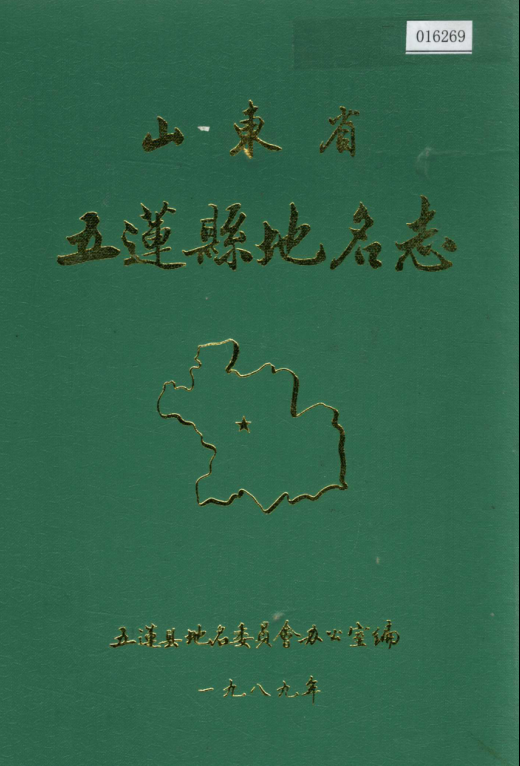 016269
山東省
五蓮縣地名志
五莲县地名委員會办公室编
一九八九年